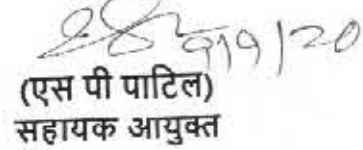 9/9/20
(एस पी पाटिल)
सहायक आयुक्त